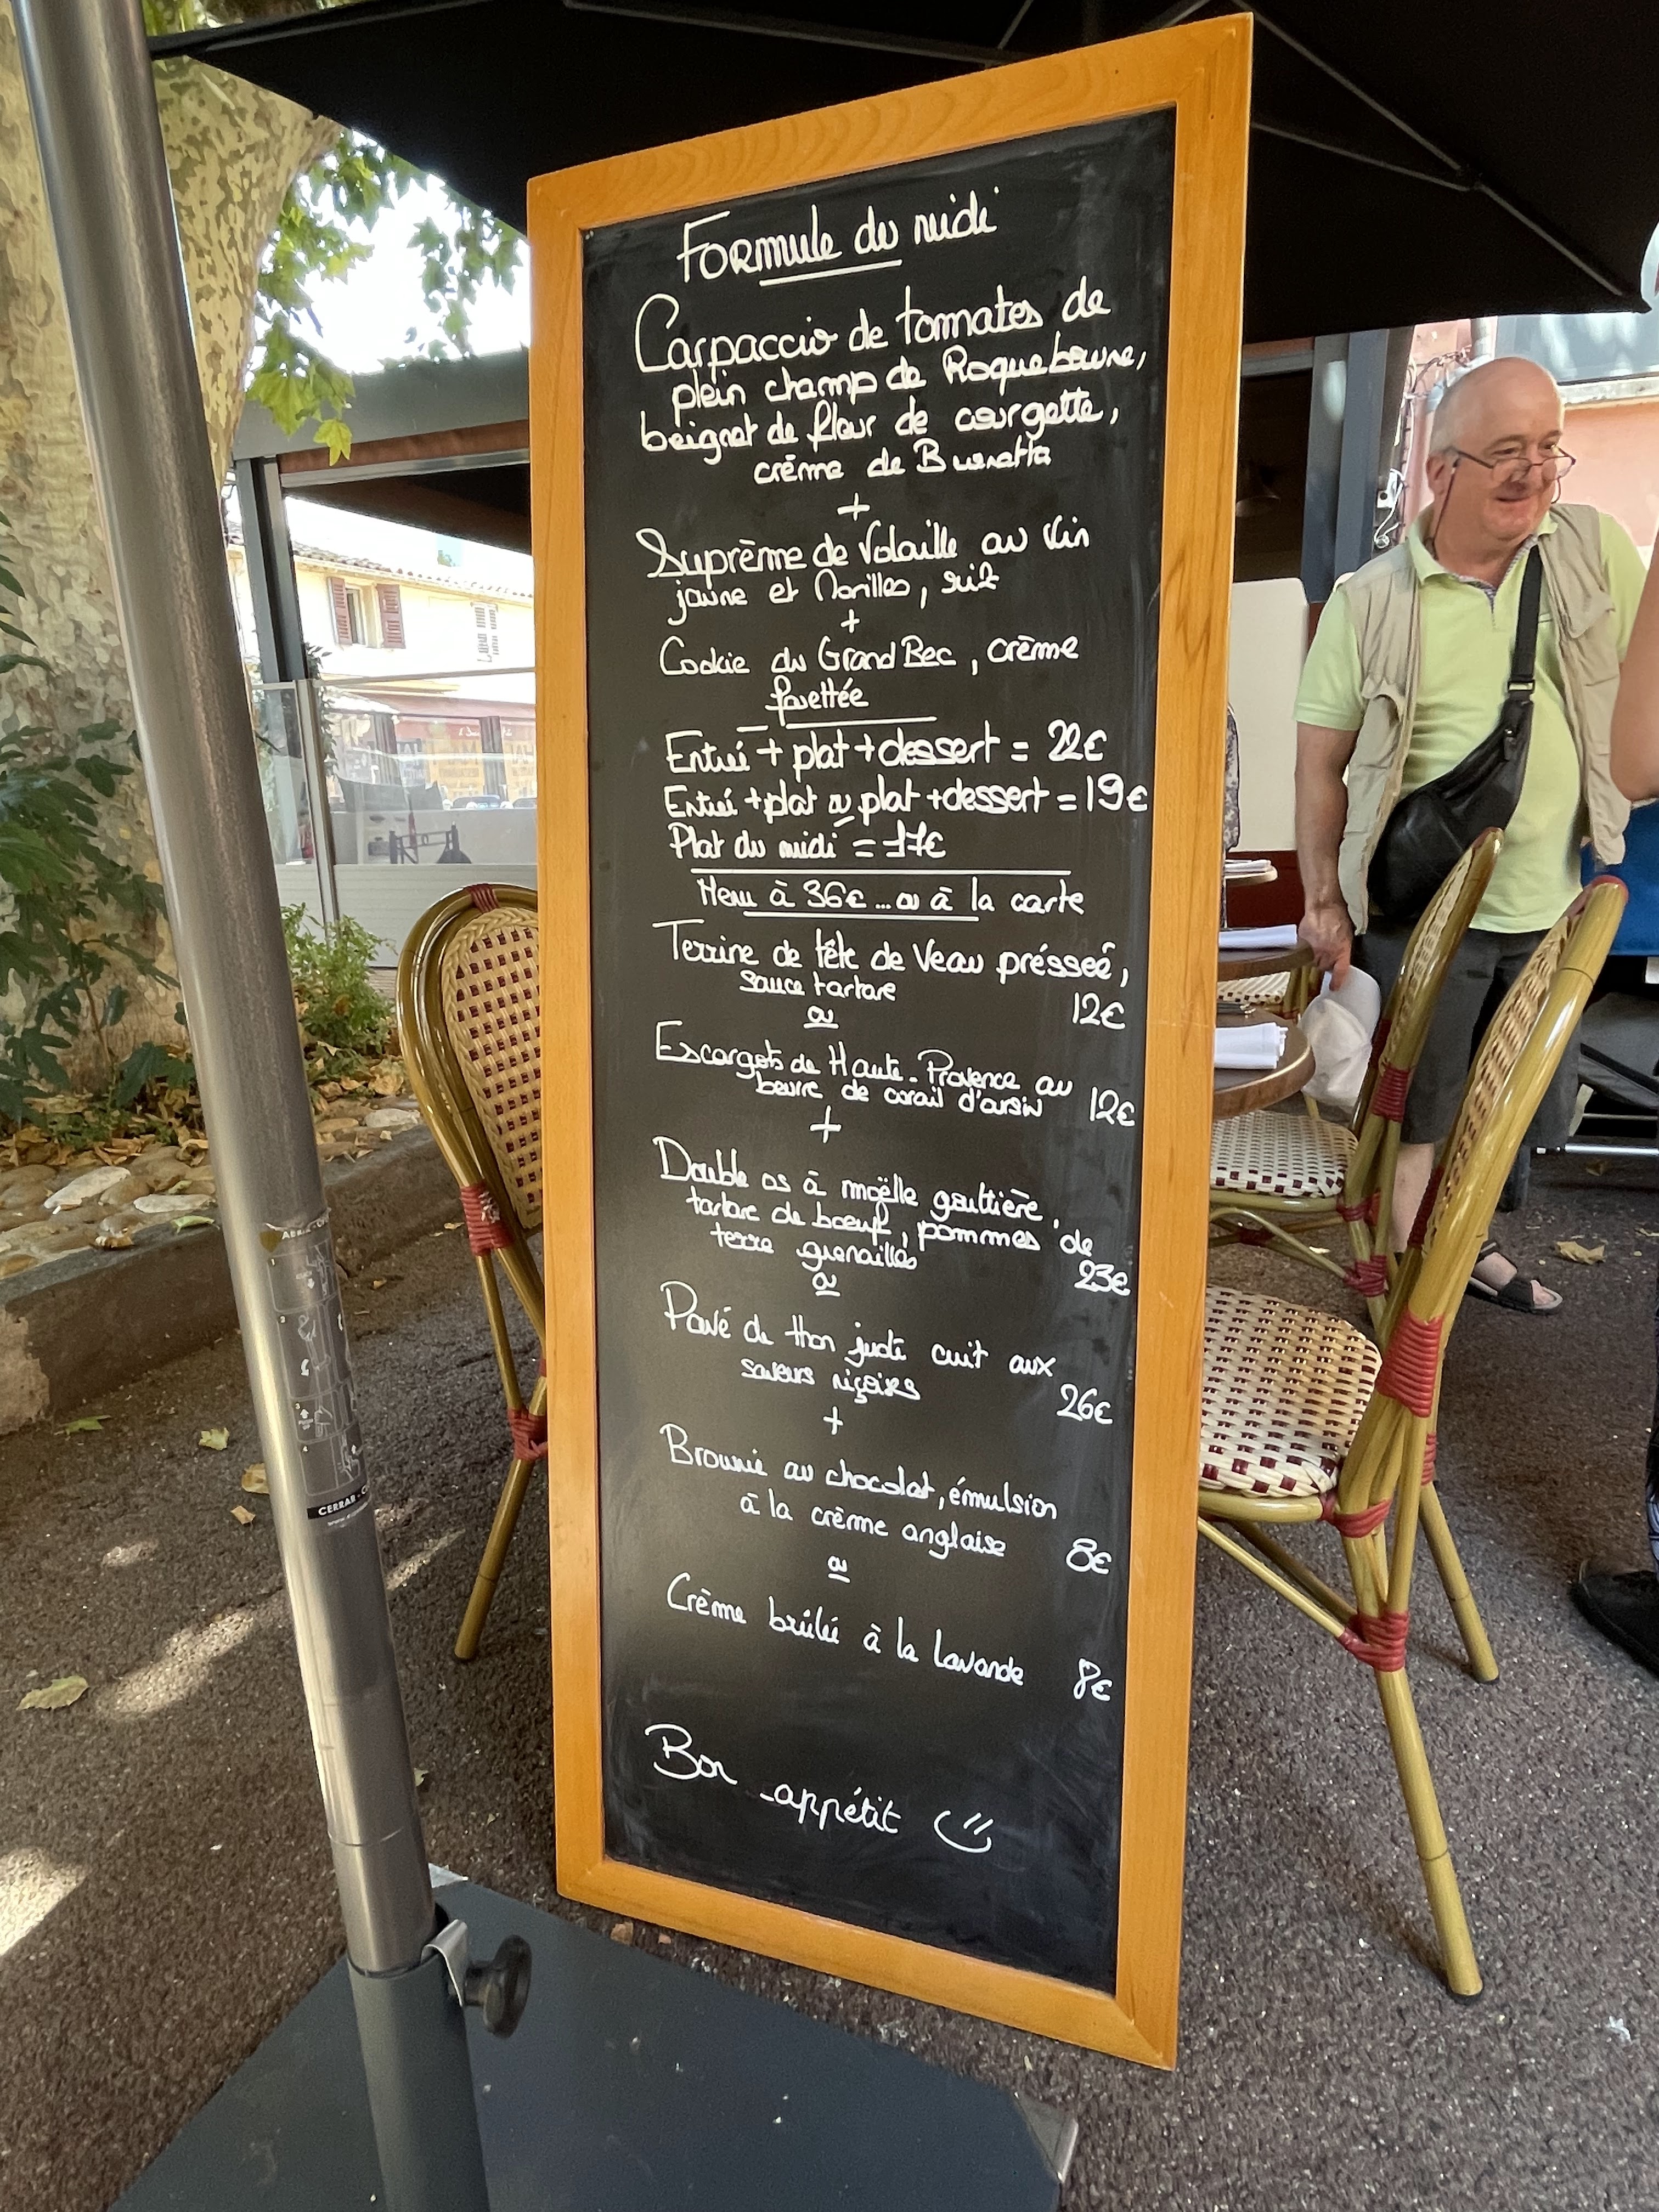 Formule du midi
Carpaccio de tomates de
plein champ de Roquebrune,
beignet de fleur de courgette,
crème de Burratta
+
Suprème de Volaille au Vin
jaune et Morilles, riz
+
Cookie du Grand Bec, crème
fouettée
Entrée + plat + dessert = 22€
Entrée + plat ou plat + dessert = 19€
Plat du midi = 17€
Menu à 36€ ... ou à la carte
Terrine de tête de Veau présseé,
sauce tartare
12€
ou
Escargots de Haute-Provence au
beurre de corail d'oursin 12€
+
Double os à moëlle gouttière,
tartare de boeuf, pommes de
terre grenailles
23€
ou
Pavé de thon juste cuit aux
saveurs niçoises
26€
+
Brownie au chocolat, émulsion
à la crème anglaise 8€
ou
Crème brûlée à la Lavande 8€
Bon appétit
CERRAR